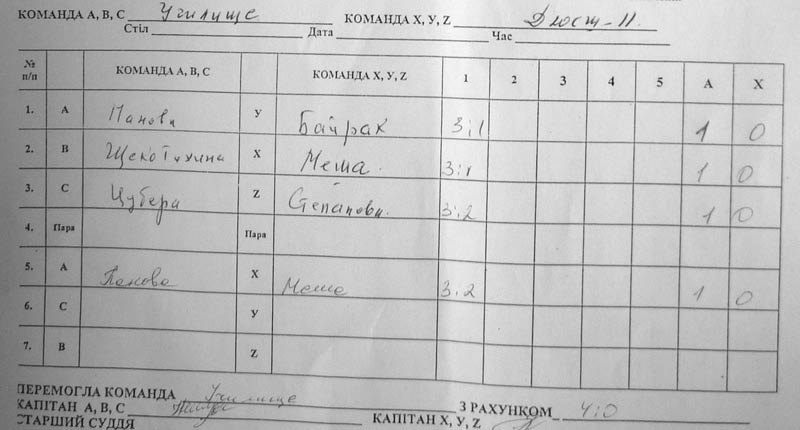 КОМАНДА А, В, С Училище КОМАНДА Х, У, Z
Стіл Дата Час
№ п/п КОМАНДА А, В, С КОМАНДА Х, У, Z 1 2 3 4 5 А Х
1. А Панова У Байрак 3:1 1 0
2. В Х Меша. 3:1 1 0
3. С Цубера Z Степанова. 3:2 1 0
4. Пара Пара
5. А Панова Х Меша 3:2 1 0
6. С У
7. В Z
ПЕРЕМОГЛА КОМАНДА Училище З РАХУНКОМ 4:0
КАПІТАН А, В, С КАПІТАН Х, У, Z
СТАРШИЙ СУДДЯ